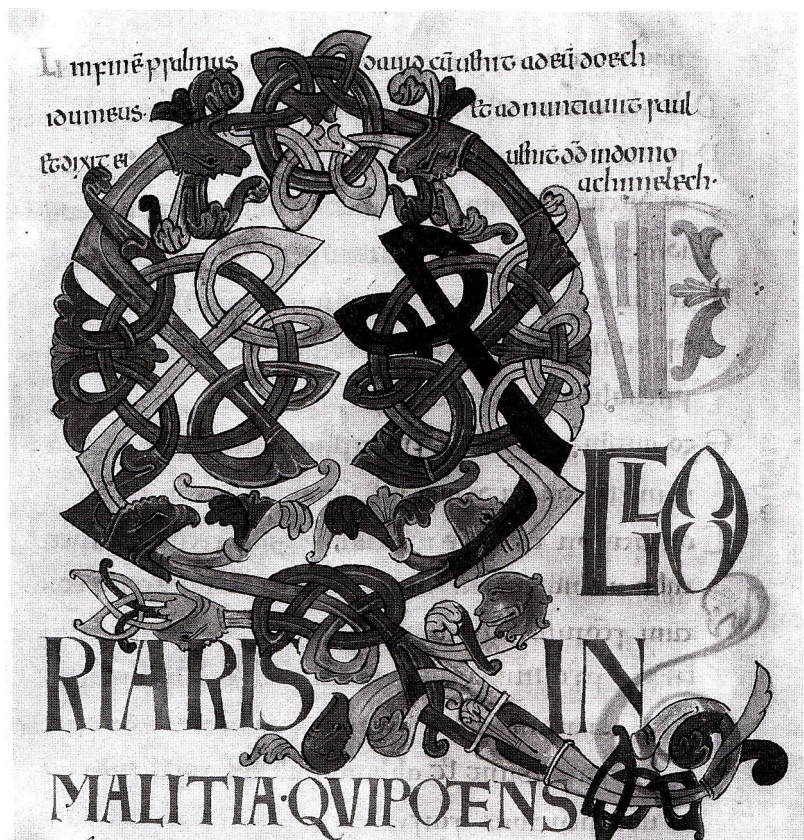 In finē psalmus dauid cū uenit ad eū doech
idumeus et adnuntiauit saul
et dixit ei uenit dd in domo
achimelech·
QVID
GLO
RIARIS IN
MALITIA·QVIPOTENS